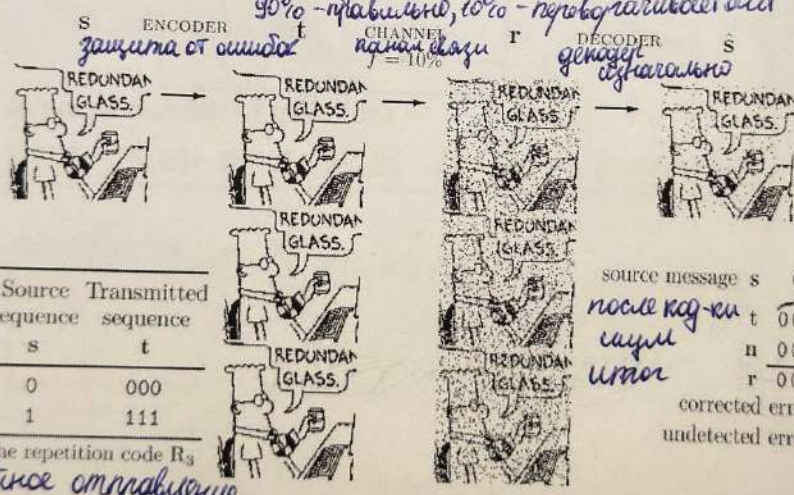 90% - правильно, 10% - переворачивается
s ENCODER t CHANNEL r DECODER ŝ
защита от ошибок канал связи декодер
f = 10% изначально
REDUNDAN
GLASS.
REDUNDAN
GLASS.
REDUNDAN
GLASS.
REDUNDAN
GLASS.
REDUNDAN
GLASS.
REDUNDAN
GLASS.
REDUNDAN
GLASS.
REDUNDAN
GLASS.
Source Transmitted
equence sequence
s t
0 000
1 111
he repetition code R3
отправление
source message s
после код-ки t 00
шум n 00
итог r 00
corrected err
undetected err